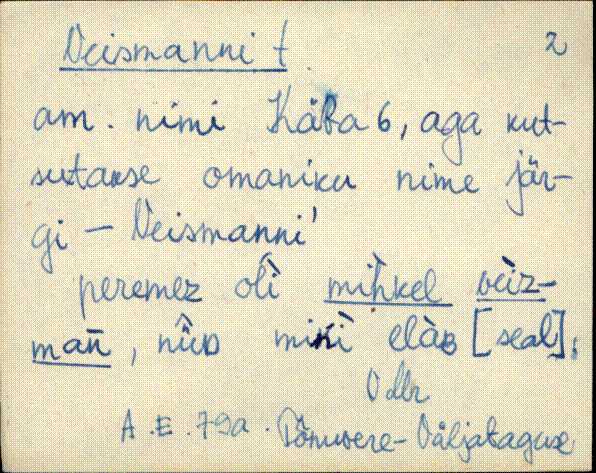 Veismanni t 2
am. nimi Käba 6, aga kut-
sutakse omaniku nime jär-
gi – Veismanni'
peremez oĺì mìhkel vèiz-
man̄, nüìᴅ mińì elàʙ [seal].
Vdlr
A.E. 79a. Põnuvere-Väljataguse